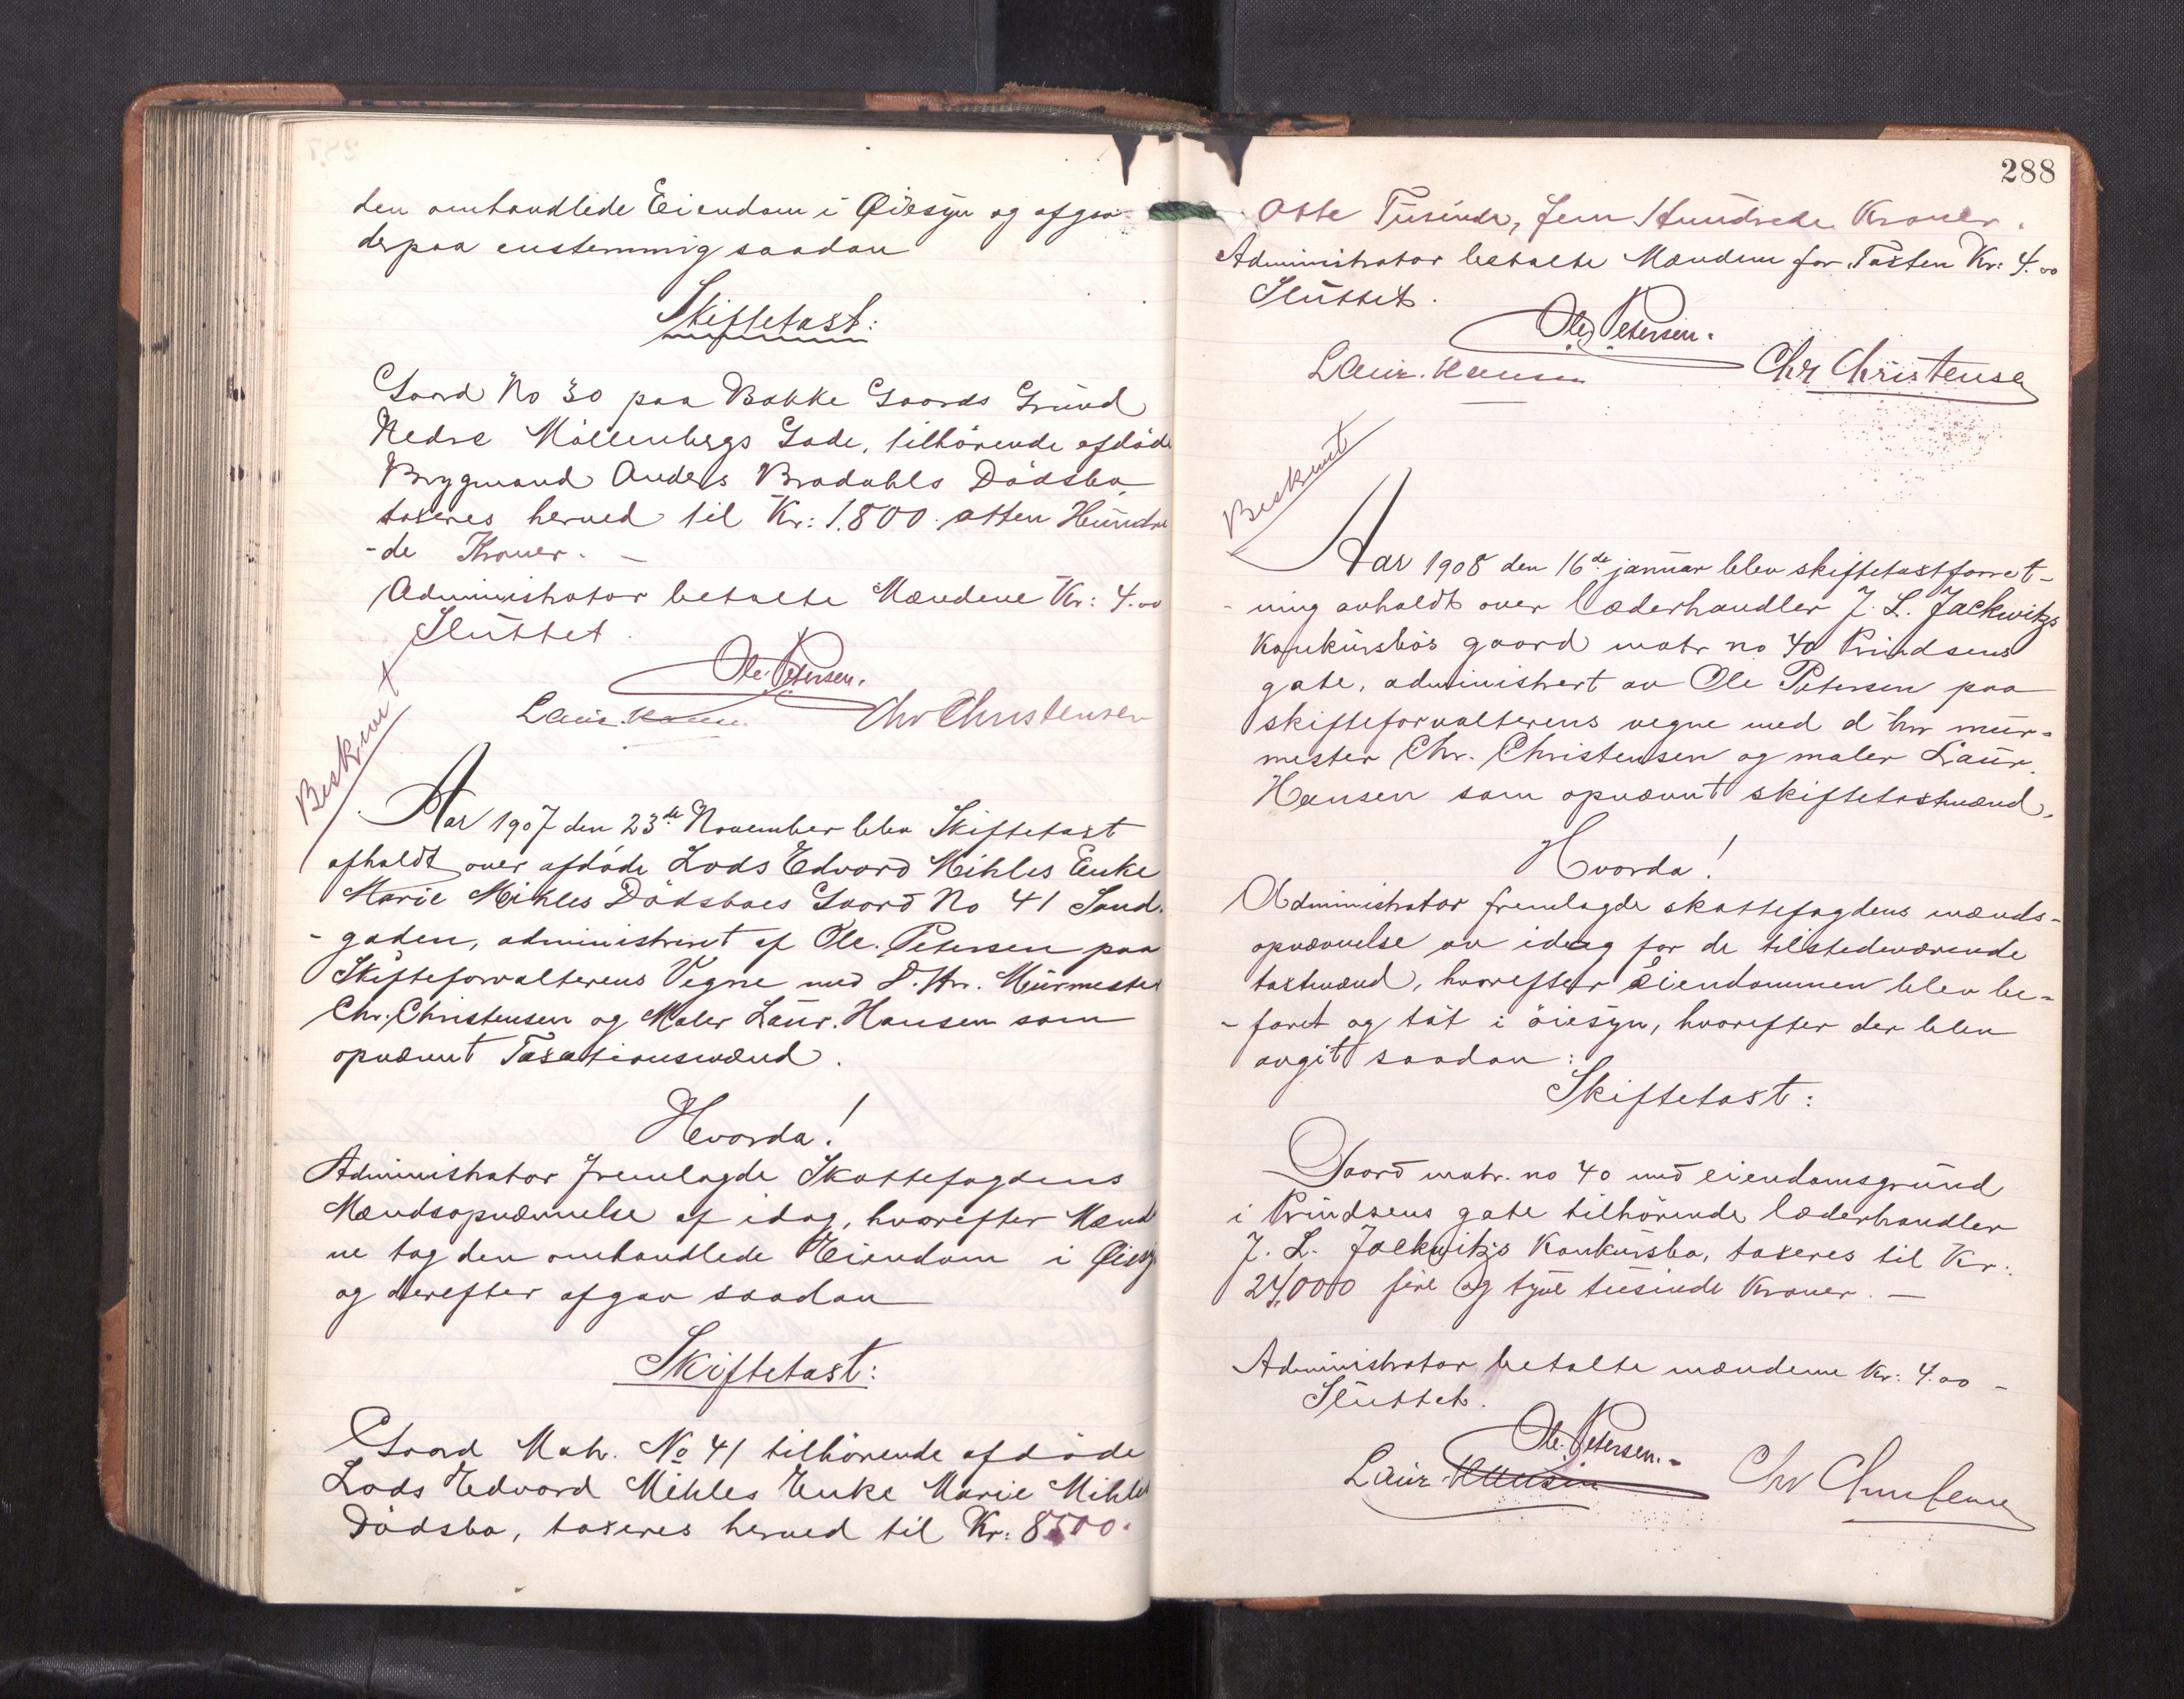 den omhandlede Eiendom i Øiesyn og afgav
derpaa enstemmig saadan
Skiftetaxt:
Gaard No 30 paa Bakke Gaards Grund
Nedre Möllenbergs Gade, tilhörende afdöde
Brygmand Anders Bradahls Dödsbo,
taxeres herved til Kr: 1.800. atten Hundre
-de Kroner. —
Administrator betalte Mændene Kr: 4.00
Sluttet.
Ole Petersen.
Laur. Hansen Chr Christensen
Beskrevet
Aar 1907 den 23de November blev Skiftetaxt
afholdt over afdöde Lods Edvard Mihles Enke
Marie Mihles Dödsboes Gaard No 41 Sand.
- gaden, administreret af Ole Petersen paa
Skifteforvalterens Vegne med d. Hrr. Murmester
Chr. Christensen og Maler Laur. Hansen som
opnævnt Taxationsmænd.
Hvorda!
Administrator fremlagde Skattefogdens
Mændsopnævnelse af idag, hvorefter Mænd
ne tog den omhandlede Eiendom i Øiesy
og derefter afgav saadan
Skiftetaxt:
Gaard Matr. No 41 tilhörende afdöde
Lods Edvard Mihles Enke Marie Mihles
Dödsbo, taxeres herved til Kr: 8500.
288
Otte Tusinde, fem Hundrede Kroner.
Administrator betalte Mændene for Taxten Kr: 4.00
Sluttet.
Ole Petersen.
Laur. Hansen Chr Christensen
Beskrevet
Aar 1908 den 16de januar blev skiftetaxtforret-
- ning avholdt over læderhandler J. L. Jackwitz's
konkursbos gaard matr no 40 Prindsens
gate, administrert av Ole Petersen paa
skifteforvalterens vegne med d hrr mur-
mester Chr. Christensen og maler Laur.
Hansen som opnævnt skiftetaxtmænd.
Hvorda!
Administrator fremlagde skattefogdens mænds-
opnævnelse av idag for de tilstedeværende
taxtmænd, hvorefter eiendommen blev be-
- faret og tat i öiesyn, hvorefter der blev
avgit saadan:
Skiftetaxt:
Gaard matr. no 40 med eiendomsgrund
i Prindsens gate tilhörende læderhandler
J. L. Jackwitz's Konkursbo, taxeres til Kr:
24,000 fire og tyve tusinde Kroner. —
Administrator betalte mændene Kr: 4.00 -
Sluttet.
Ole Petersen.-
Laur Hansen Chr Christensen